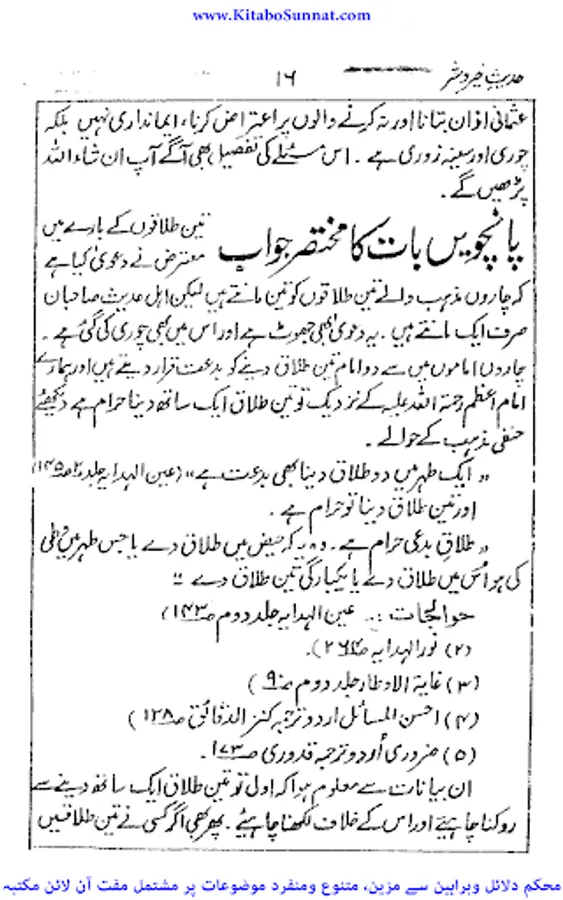 www.KitaboSunnat.com
حدیثِ خیر و شر
۱۶
عثمانی اذان بتانا اور نہ کرنے والوں پر اعتراض کرنا، ایمانداری نہیں بلکہ
چوری اور سینہ زوری ہے ۔ اس مسئلے کی تفصیل بھی آگے آپ ان شاء اللہ
پڑھیں گے ۔
پانچویں بات کا مختصر جواب
تین طلاقوں کے بارے میں
معترض نے دعویٰ کیا ہے
کہ چاروں مذہب والے تین طلاقوں کو تین مانتے ہیں لیکن اہل حدیث صاحبان
صرف ایک مانتے ہیں ۔ یہ دعویٰ بھی جھوٹ ہے اور اس میں بھی چوری کی گئی ہے ۔
چاروں اماموں میں سے دو امام تین طلاق دینے کو بدعت قرار دیتے ہیں اور ہمارے
امام اعظم رحمۃ اللہ علیہ کے نزدیک تو تین طلاق ایک ساتھ دینا حرام ہے دیکھئے
حنفی مذہب کے حوالے ۔
" ایک طہر میں دو طلاق دینا بھی بدعت ہے " (عین الہدایہ جلد ۲ ص۱۴۵)
اور تین طلاق دینا تو حرام ہے ۔
" طلاقِ بدعی حرام ہے ۔ وہ یہ کہ حیض میں طلاق دے یا جس طہر میں وطی
کی ہو اُس میں طلاق دے یا یکبارگی تین طلاق دے "
حوالجات :۔ عین الہدایہ جلد دوم ص۱۴۳)
(۲) نور الہدایہ ص۲۶۴)۔
(۳) غایۃ الاوطار جلد دوم ص۹۰)
(۴) احسن المسائل اردو ترجمہ کنز الدقائق ص۱۲۸)
(۵) ضروری اُردو ترجمہ قدوری ص۱۷۳۔
ان بیانات سے معلوم ہوا کہ اول تو تین طلاق ایک ساتھ دینے سے
روکنا چاہیئے اور اس کے خلاف لکھنا چاہیئے ۔ پھر بھی اگر کسی نے تین طلاقیں
محکم دلائل وبراہین سے مزین، متنوع ومنفرد موضوعات پر مشتمل مفت آن لائن مکتبہ